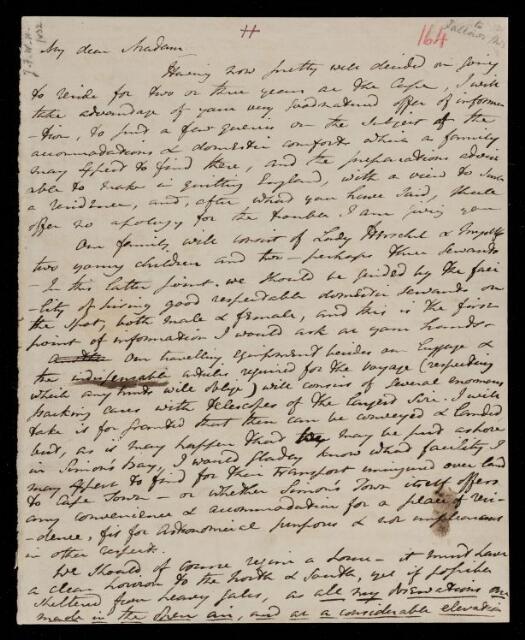 J.F.W.H.
1832
11
164
to
Fallows
My dear Madam
Having now pretty well decided on going
to reside for two or three years at the Cape, I will
take advantage of your very goodnatured offer of informa
-tion, to send a few queries on the subject of the
accommodations & domestic comforts which a family
may expect to find there, and the preparations advis
able to make in quitting England, with a view to such
a residence, and, after what you have said, shall
offer no apology for the trouble I am giving you
Our family will consist of Lady Herschel & myself
two young children and two - perhaps three servants
- In this latter point. we should be guided by the faci
-lity of hiring good respectable domestic servants on
the spot, both male & female, and this is the first
point of information I would ask at your hands.
Our travelling equipment besides our luggage &
the indispensable articles required for the voyage (respecting
which any hints will oblige) will consist of several enormous
packing cases with telescopes of the largest size. I will
take it for granted that these can be conveyed & landed
but, as it may happen that they may be put ashore
in Simon's Bay, I would gladly know what facility I
may expect to find for their transport uninjured over land
to Cape Town - or whether Simon's Town itself offers
any convenience & accommodation for a place of resi
-dence, fit for Astronomical purposes & not unpleasant
in other respects.
We should of course require a house - it must have
a clear horizon to the North & South, yet if possible
sheltered from heavy gales, as all my observations are
made in the open air, and at a considerable elevation